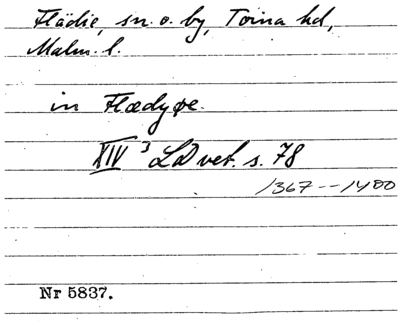 Flädie, sn. o. by, Torna hd,
Malm. l.
in Flædyøe.
XIV³ LD vet. s. 78
1367--1400
Nr 5837.